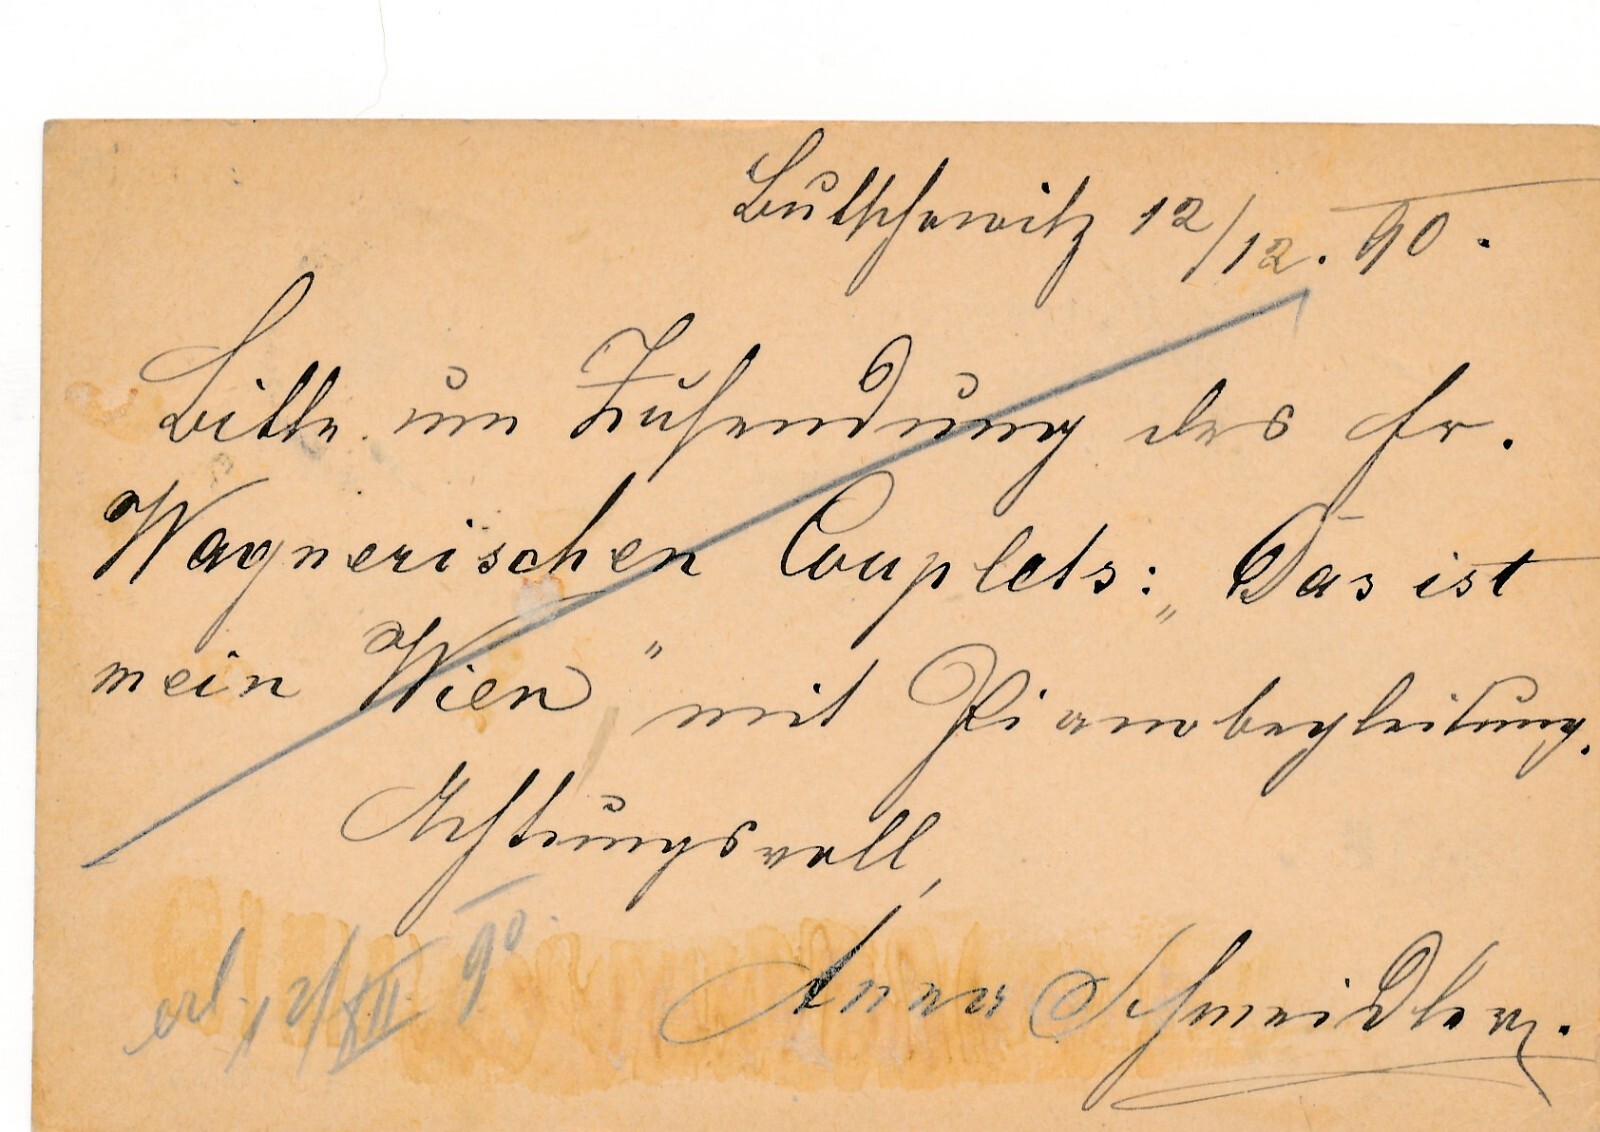 Butschowitz 12/12. 90.
Bitte um Zusendung des Fr.
Wagnerischen Couplets: „Das ist
mein Wien" mit Pianobegleitung.
Achtungsvoll,
Anna Schmeidler.
erl. 12/XII 90.